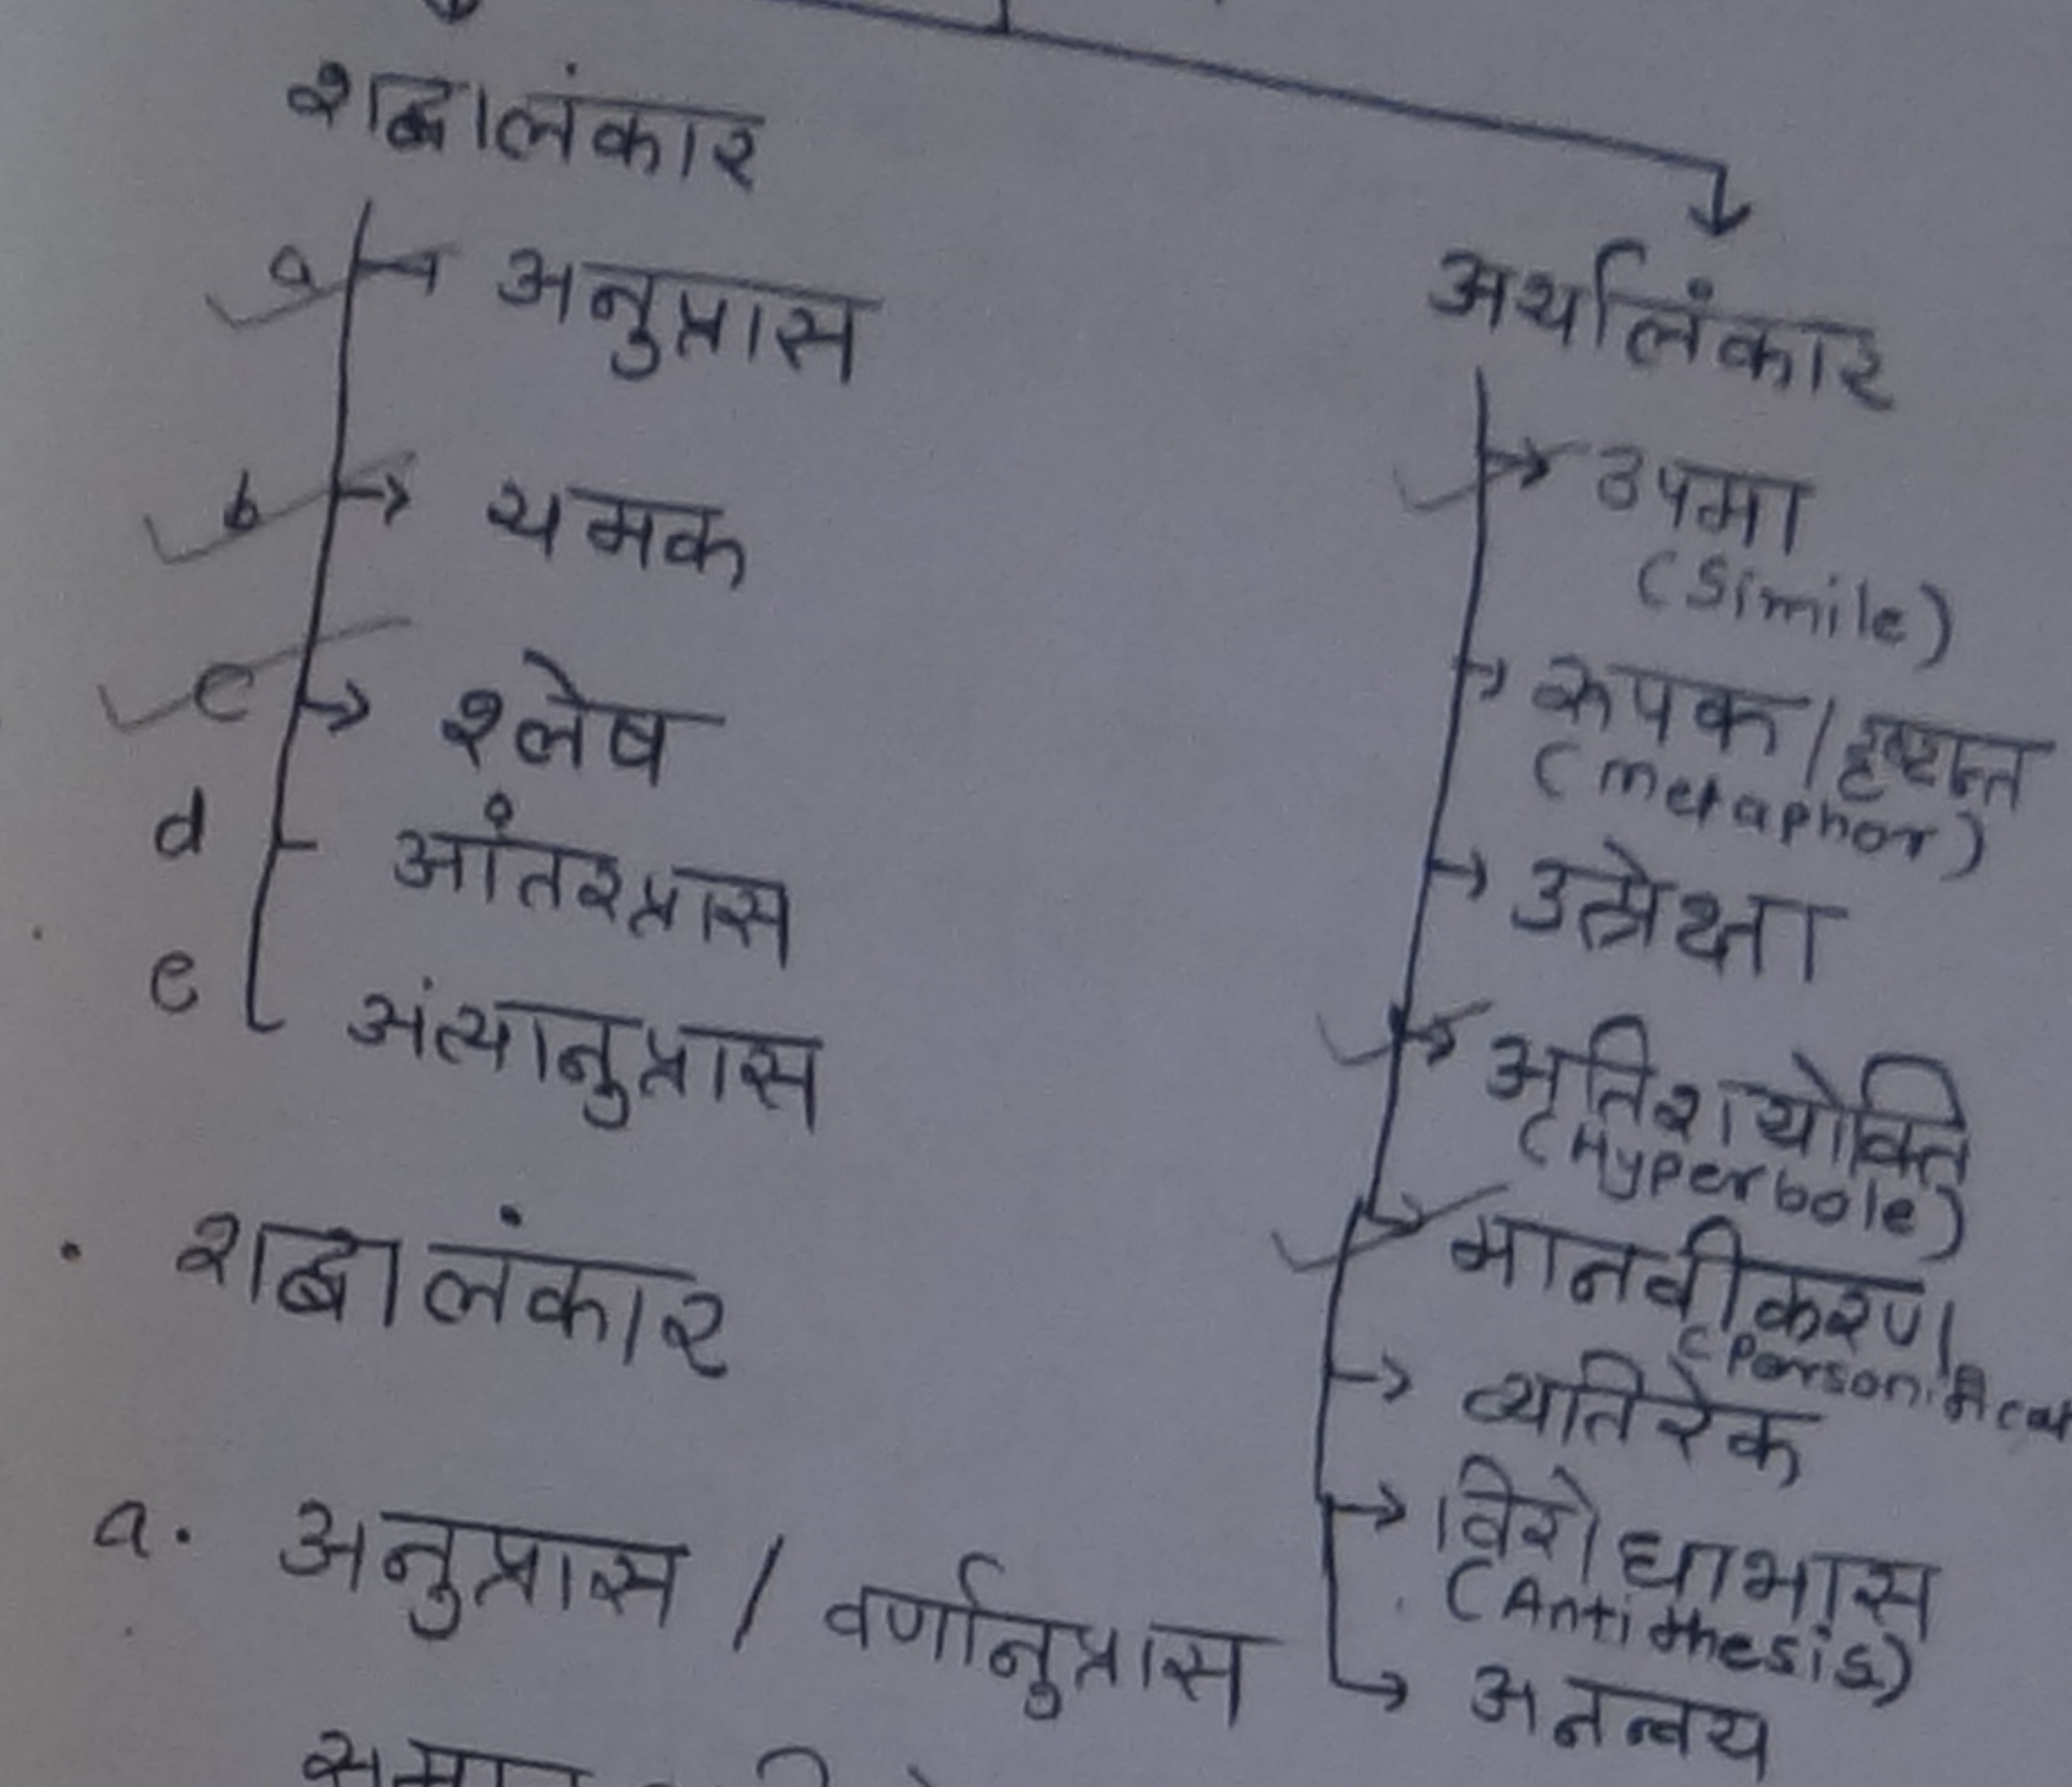 शब्दालंकार
a अनुप्रास
b यमक
c श्लेष
d आंतरप्रास
e अंत्यानुप्रास
अर्थालंकार
उपमा
(Simile)
रूपक / दृष्टान्त
(metaphor)
उत्प्रेक्षा
अतिशयोक्ति
(Hyperbole)
मानवीकरण
व्यतिरेक
विरोधाभास
(Antithesis)
अनन्वय
• शब्दालंकार
a. अनुप्रास / वर्णानुप्रास